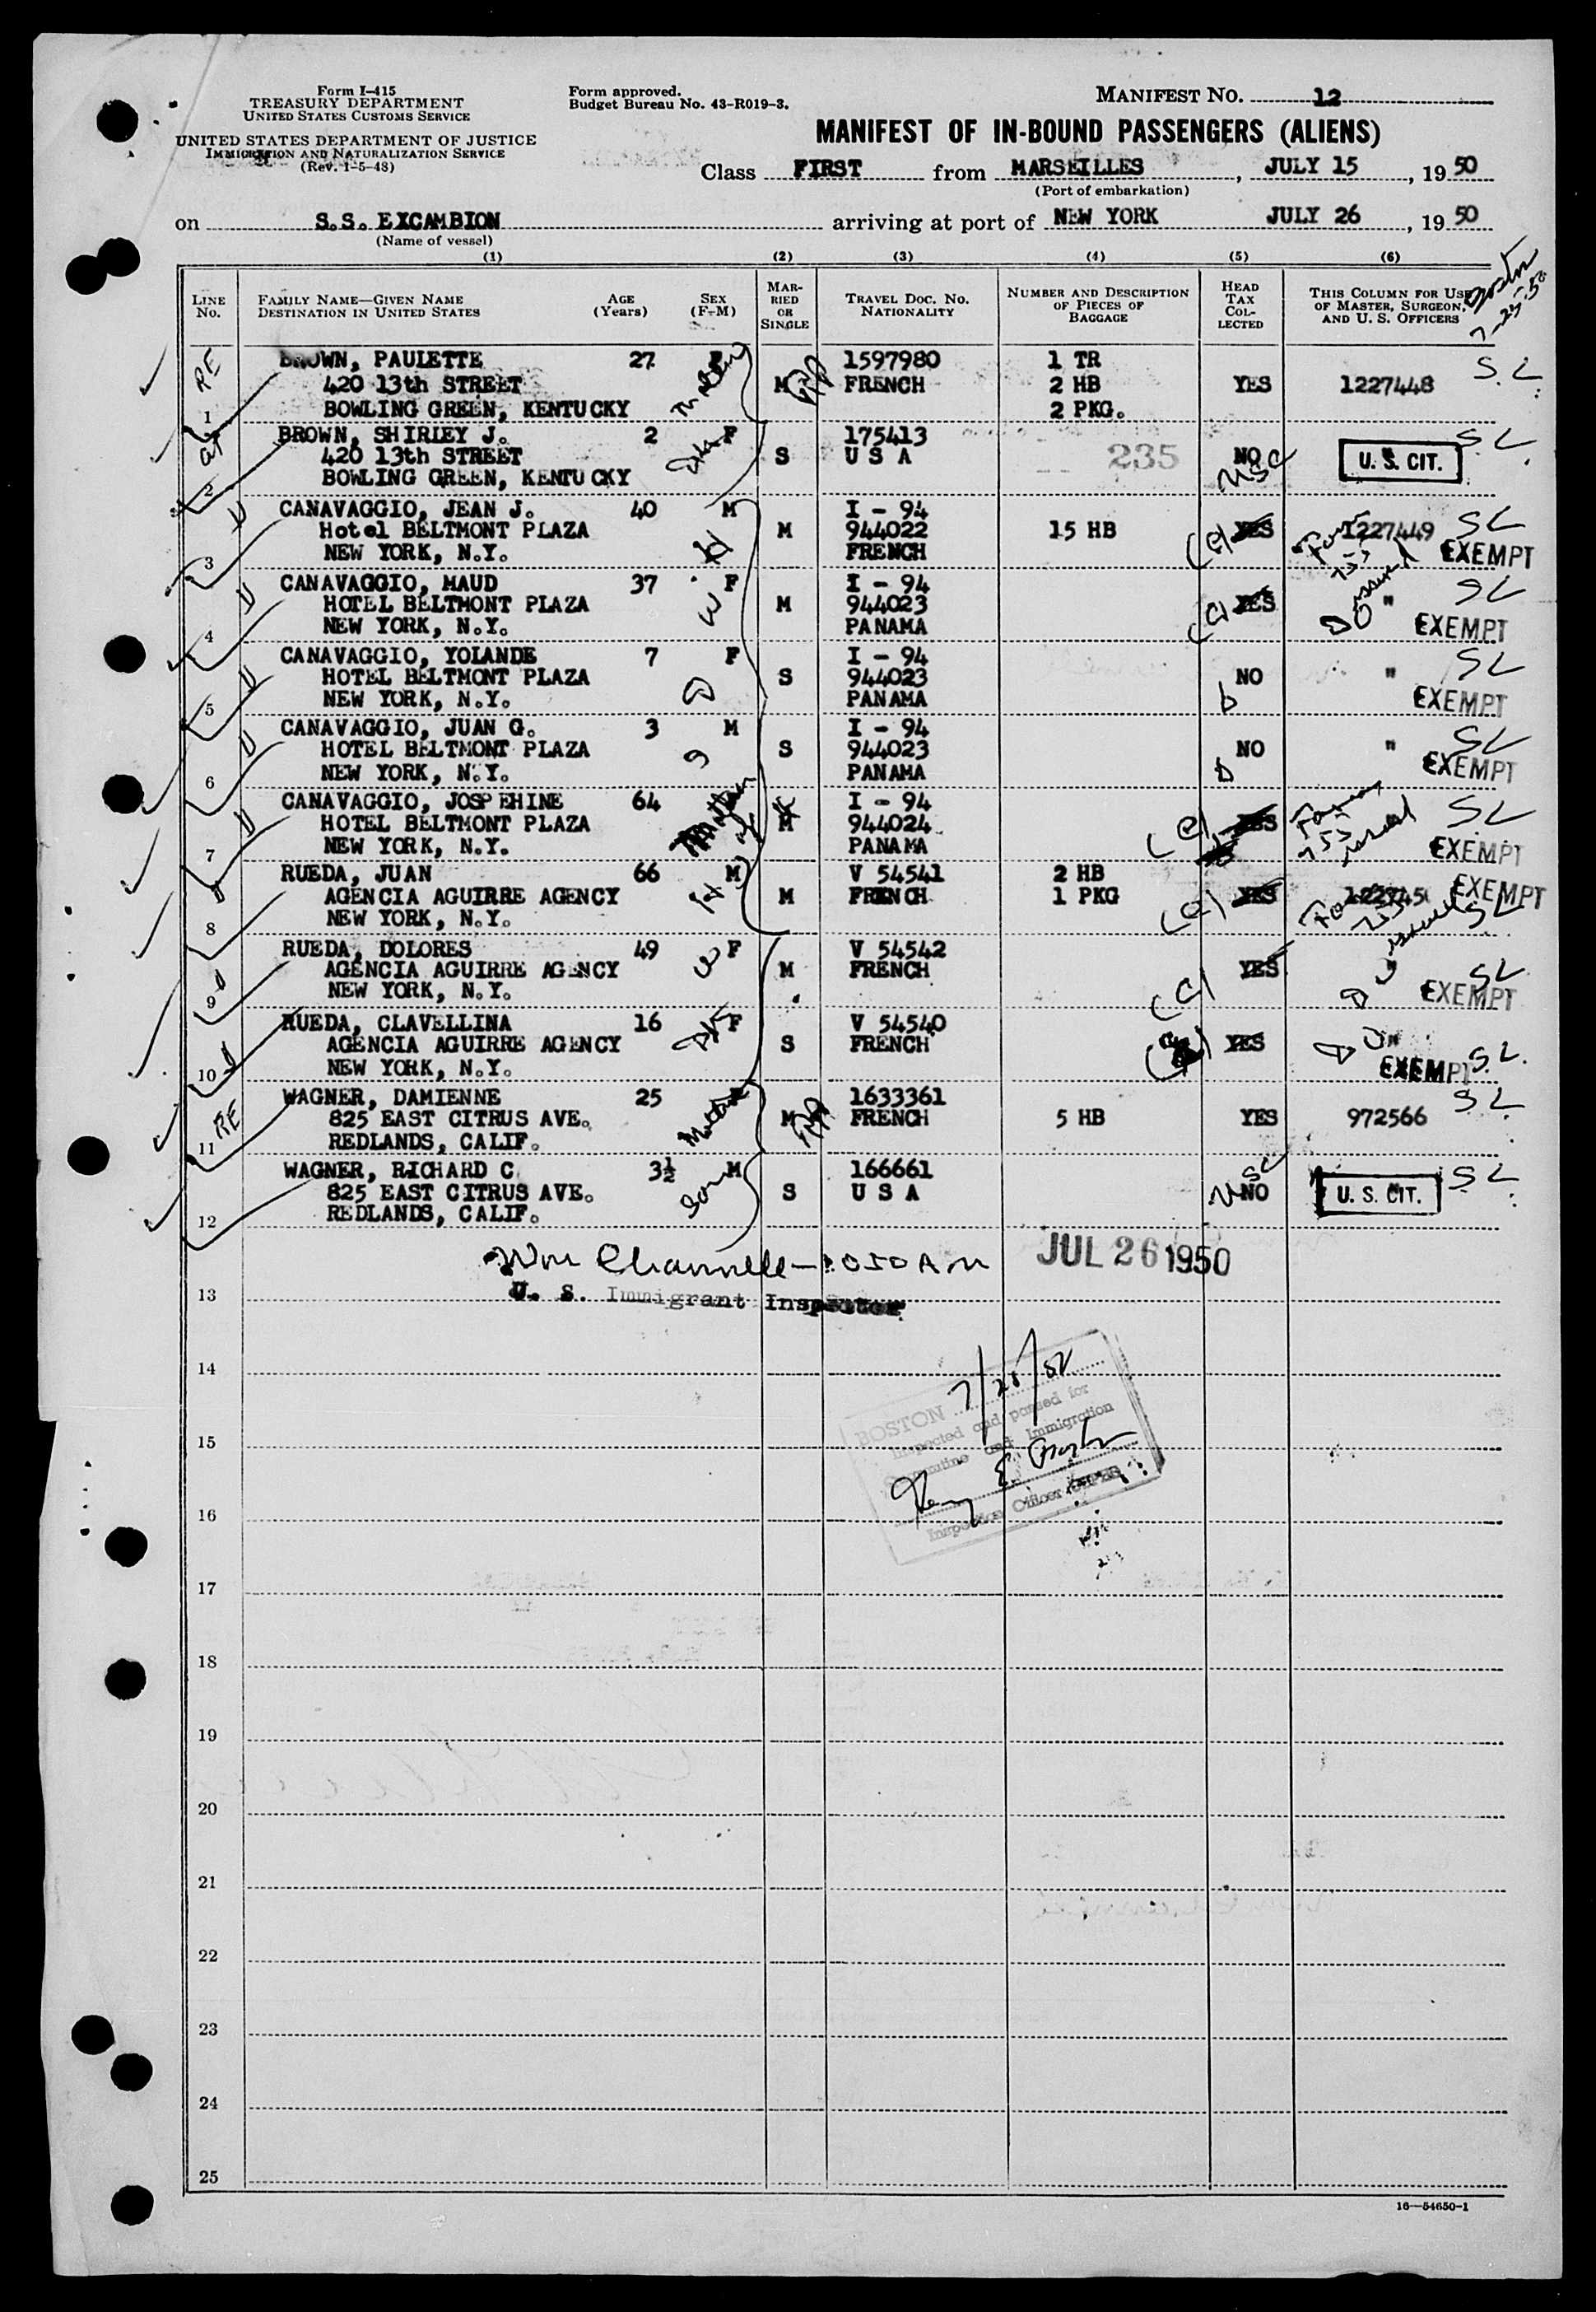 Form I-415
TREASURY DEPARTMENT
UNITED STATES CUSTOMS SERVICE
UNITED STATES DEPARTMENT OF JUSTICE
IMMIGRATION AND NATURALIZATION SERVICE
(Rev. 1-5-48)
Form approved.
Budget Bureau No. 43-R019-3.
MANIFEST NO. 12
MANIFEST OF IN-BOUND PASSENGERS (ALIENS)
Class FIRST from MARSEILLES, JULY 15, 19 50
(Port of embarkation)
on S.S. EXCAMBION arriving at port of NEW YORK JULY 26, 19 50
(Name of vessel)
(1) (2) (3) (4) (5) (6)
Boston
7-25-50
LINE No.
FAMILY NAME—GIVEN NAME
DESTINATION IN UNITED STATES
AGE (Years)
SEX (F-M)
MARRIED OR SINGLE
TRAVEL DOC. NO.
NATIONALITY
NUMBER AND DESCRIPTION OF PIECES OF BAGGAGE
HEAD TAX COLLECTED
THIS COLUMN FOR USE OF MASTER, SURGEON, AND U. S. OFFICERS
RE BROWN, PAULETTE 27 F 1597980 1 TR S.L.
420 13th STREET M FRENCH 2 HB YES 1227448
1 BOWLING GREEN, KENTUCKY 2 PKG.
BROWN, SHIRLEY J. 2 F 175413 SL
420 13th STREET S U S A 235 NO U. S. CIT.
2 BOWLING GREEN, KENTUCKY
USC
CANAVAGGIO, JEAN J. 40 M I - 94 SL
Hotel BELTMONT PLAZA M 944022 15 HB YES 1227449
3 NEW YORK, N.Y. FRENCH EXEMPT
CANAVAGGIO, MAUD 37 F I - 94 SL
HOTEL BELTMONT PLAZA M 944023 YES "
4 NEW YORK, N.Y. PANAMA EXEMPT
CANAVAGGIO, YOLANDE 7 F I - 94 SL
HOTEL BELTMONT PLAZA S 944023 NO "
5 NEW YORK, N.Y. PANAMA EXEMPT
CANAVAGGIO, JUAN G. 3 M I - 94 SL
HOTEL BELTMONT PLAZA S 944023 NO "
6 NEW YORK, N.Y. PANAMA EXEMPT
CANAVAGGIO, JOSPEHINE 64 I - 94 SL
HOTEL BELTMONT PLAZA M 944024 YES
7 NEW YORK, N.Y. PANAMA EXEMPT
RUEDA, JUAN 66 M V 54541 2 HB EXEMPT
AGENCIA AGUIRRE AGENCY M FRENCH 1 PKG YES
8 NEW YORK, N.Y. SL
RUEDA, DOLORES 49 F V 54542
AGENCIA AGUIRRE AGENCY M FRENCH YES " SL
9 NEW YORK, N.Y. EXEMPT
RUEDA, CLAVELLINA 16 F V 54540
AGENCIA AGUIRRE AGENCY S FRENCH YES "
10 NEW YORK, N.Y. EXEMPT S.L.
RE WAGNER, DAMIENNE 25 F 1633361 SL
825 EAST CITRUS AVE. M FRENCH 5 HB YES 972566
11 REDLANDS, CALIF.
WAGNER, RICHARD C 3½ M 166661 SL
825 EAST CITRUS AVE. S U S A NO U. S. CIT.
12 REDLANDS, CALIF.
JUL 26 1950
13 U. S. Immigrant Inspector
14
BOSTON
Inspected and passed for
15
Quarantine and Immigration
16
Inspection Officer
17
18
19
20
21
22
23
24
25
16—54650-1